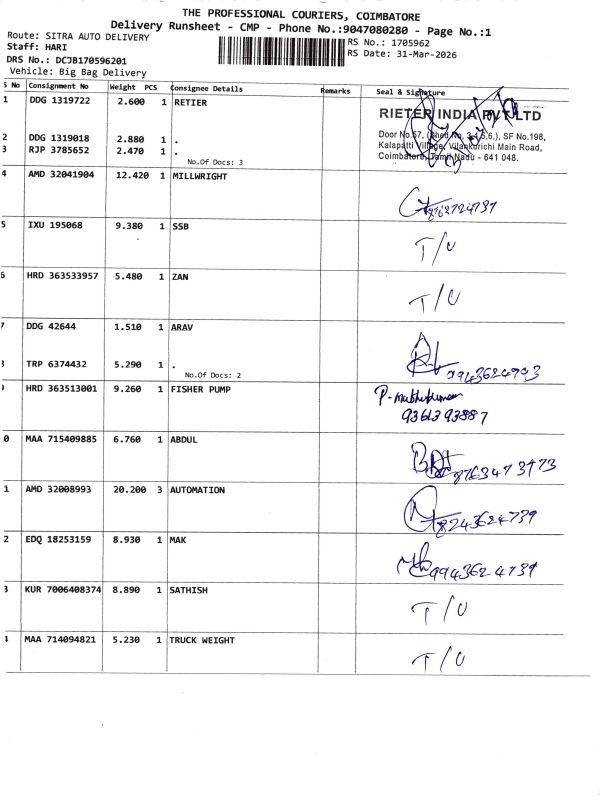 THE PROFESSIONAL COURIERS, COIMBATORE
Delivery Runsheet - CMP - Phone No.:9047080280 - Page No.:1
Route: SITRA AUTO DELIVERY
Staff: HARI
RS No.: 1705962
DRS No.: DCJB170596201
RS Date: 31-Mar-2026
Vehicle: Big Bag Delivery
S No Consignment No Weight PCS Consignee Details Remarks Seal & Signature
1 DDG 1319722 2.600 1 RETIER
RIETER INDIA PVT LTD
Door No.57, (Shed No. 3,4,5,6.), SF No.198,
Kalapatti Village, Vilankurichi Main Road,
Coimbatore, Tamil Nadu - 641 048.
2 DDG 1319018 2.880 1 .
3 RJP 3785652 2.470 1 .
No.Of Docs: 3
4 AMD 32041904 12.420 1 MILLWRIGHT
5 IXU 195068 9.380 1 SSB
T/U
6 HRD 363533957 5.480 1 ZAN
T/U
7 DDG 42644 1.510 1 ARAV
TRP 6374432 5.290 1 .
No.Of Docs: 2
9943624793
9 HRD 363513001 9.260 1 FISHER PUMP
9361393887
0 MAA 715409885 6.760 1 ABDUL
8763473973
1 AMD 32008993 20.200 3 AUTOMATION
8243624739
2 EDQ 18253159 8.930 1 MAK
9943624739
3 KUR 7006408374 8.890 1 SATHISH
T/U
4 MAA 714094821 5.230 1 TRUCK WEIGHT
T/U